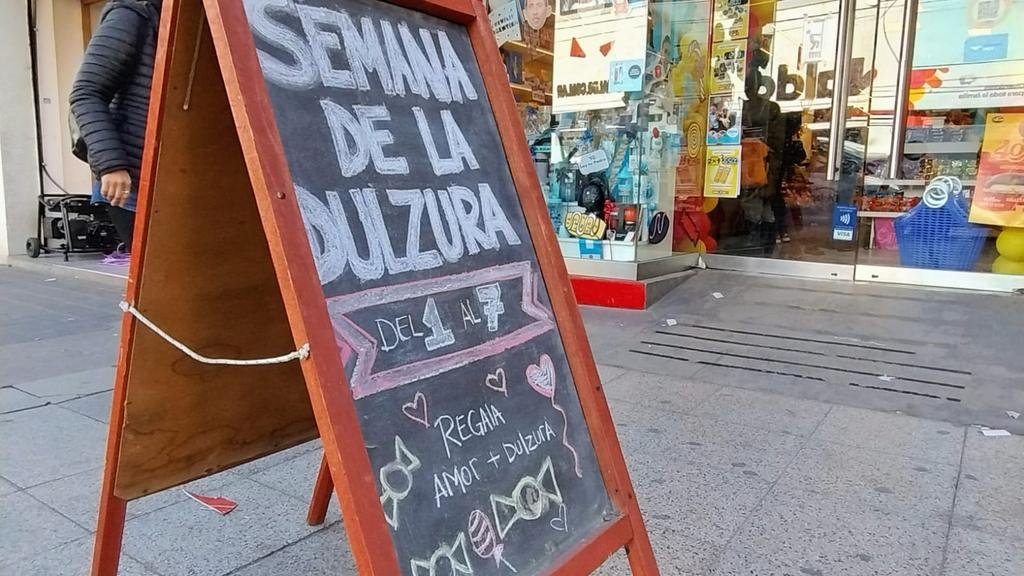 SEMANA
DE LA
DULZURA
DEL 1 AL 7
REGALA
AMOR + DulZURA
VISA